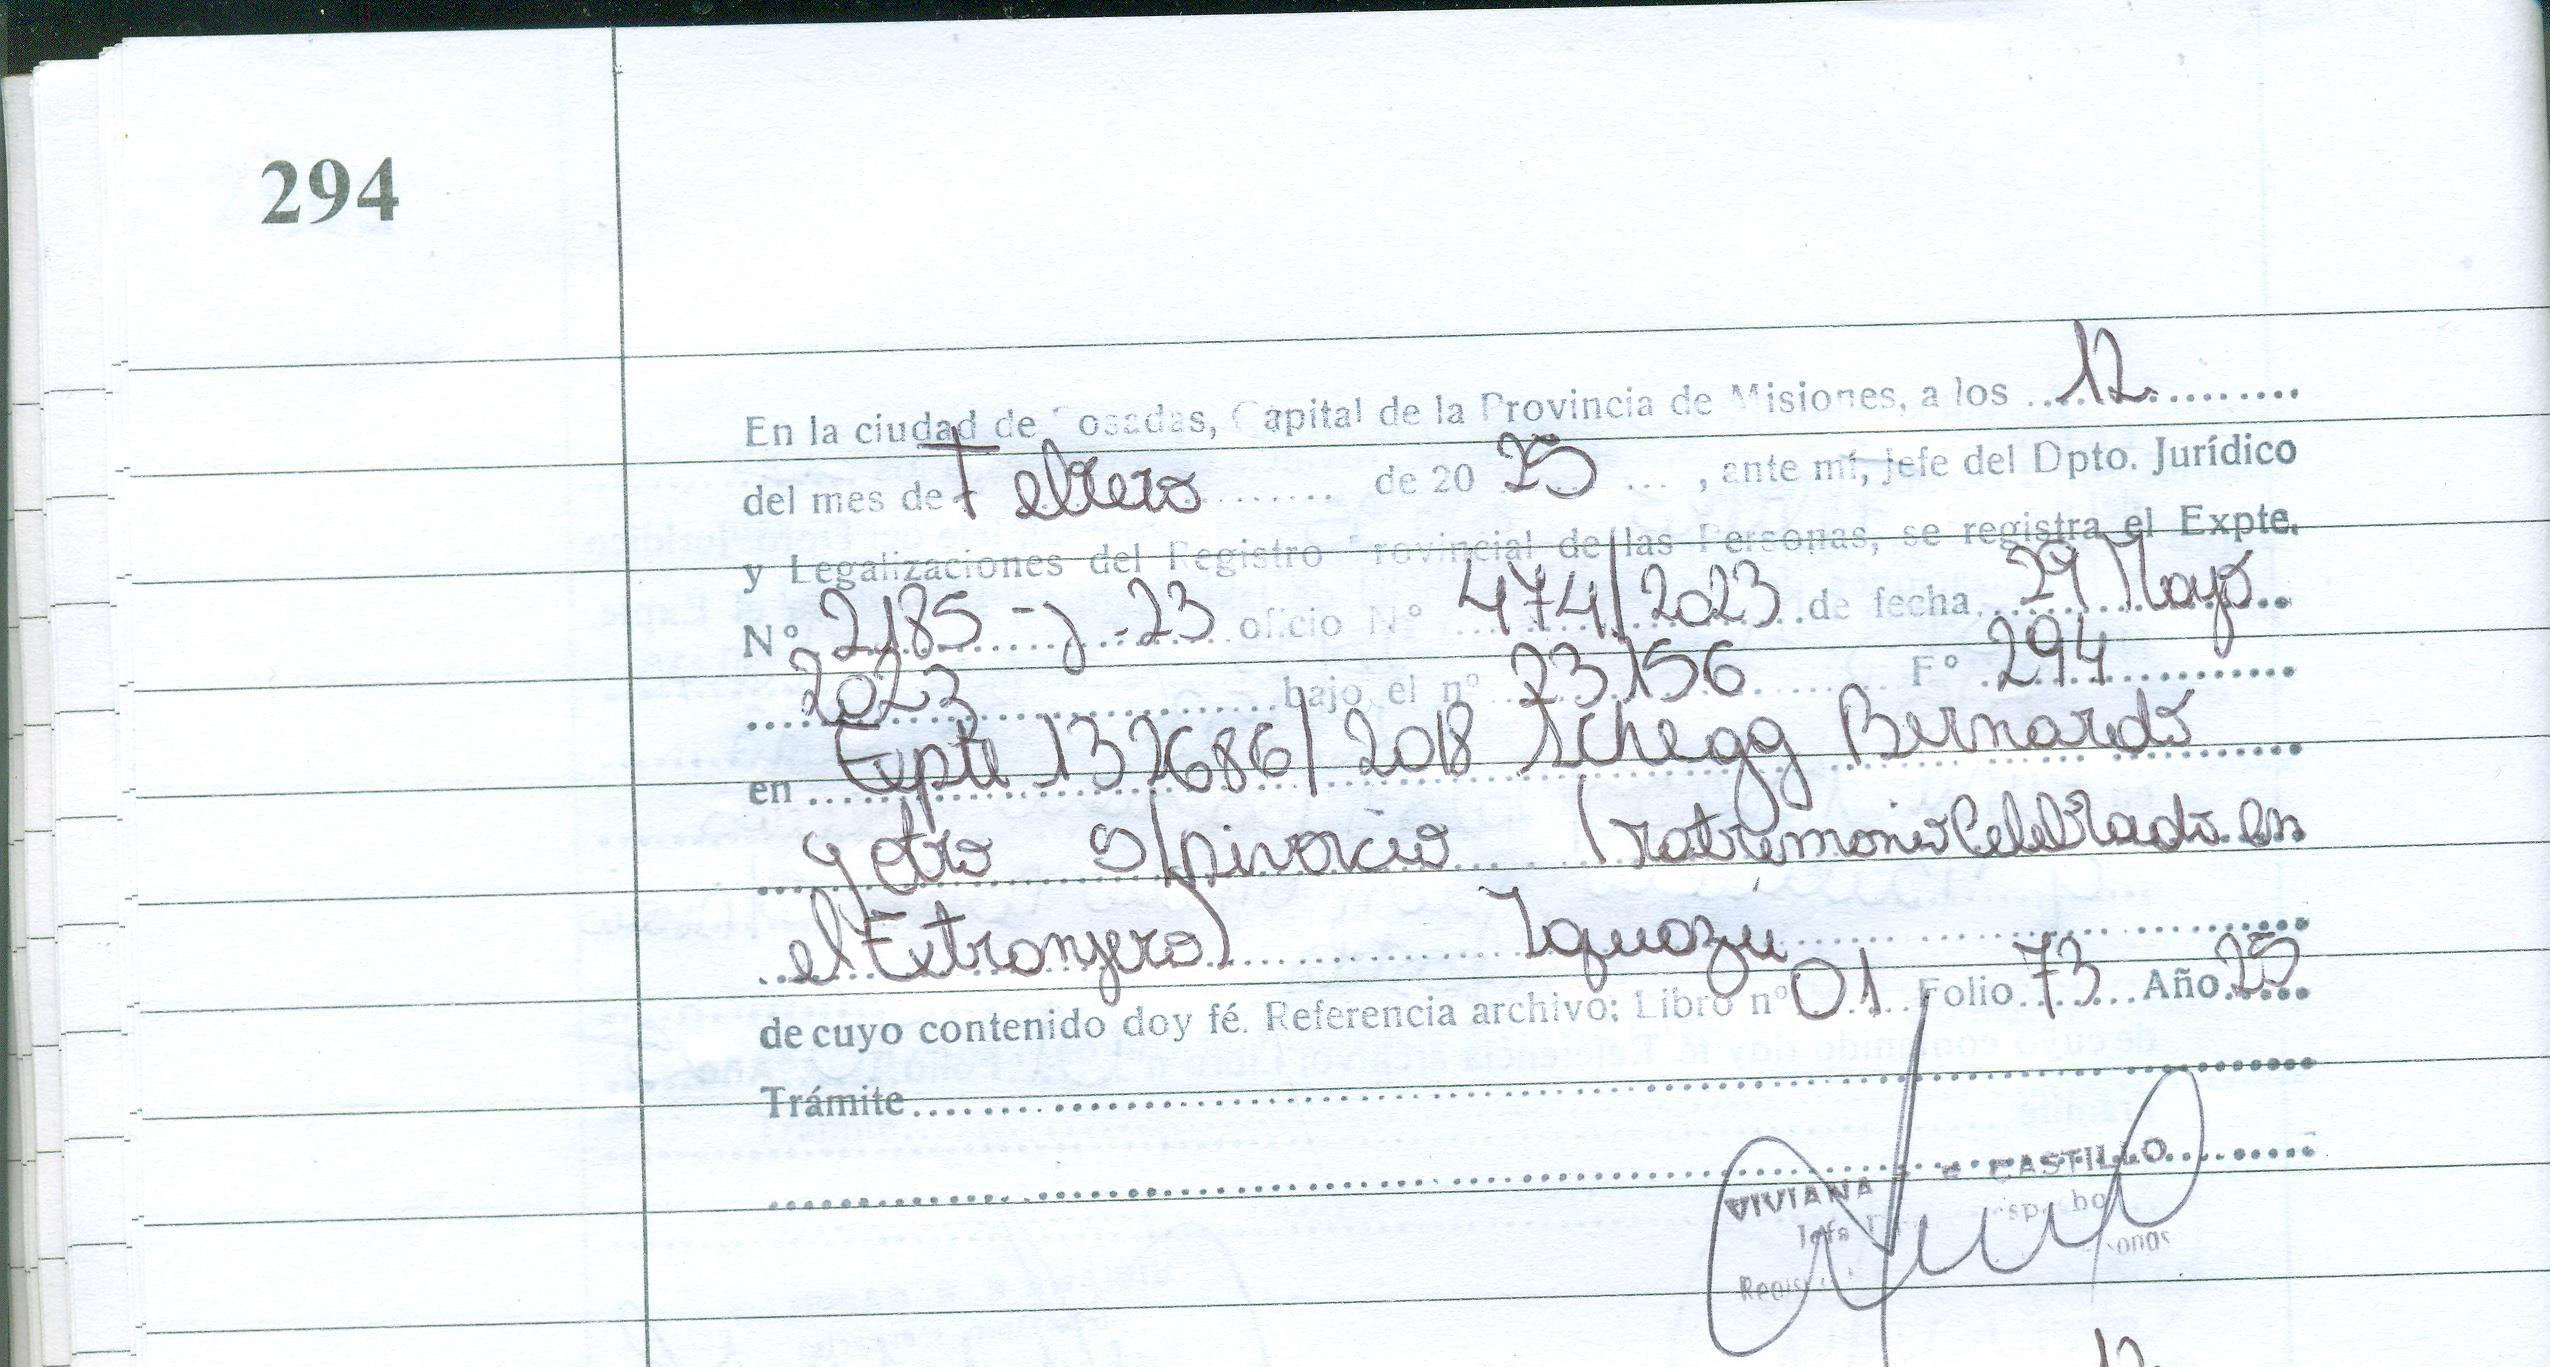 294
En la ciudad de Posadas, Capital de la Provincia de Misiones, a los 12
del mes de Febrero de 2025, ante mí, Jefe del Dpto. Jurídico
y Legalizaciones del Registro Provincial de las Personas, se registra el Expte.
N° 2185-J-23 oficio N° 474/2023 de fecha 29 Mayo
2023 bajo el n° 23156 F° 294
en Expte 132686/2018 Schegg Bernardo
y otro s/Divorcio (Matrimonio Celebrado en
el Extranjero) Iguazú
de cuyo contenido doy fé. Referencia archivo; Libro n° 01 Folio 73 Año 25
Trámite
VIVIANA CASTILLO
12